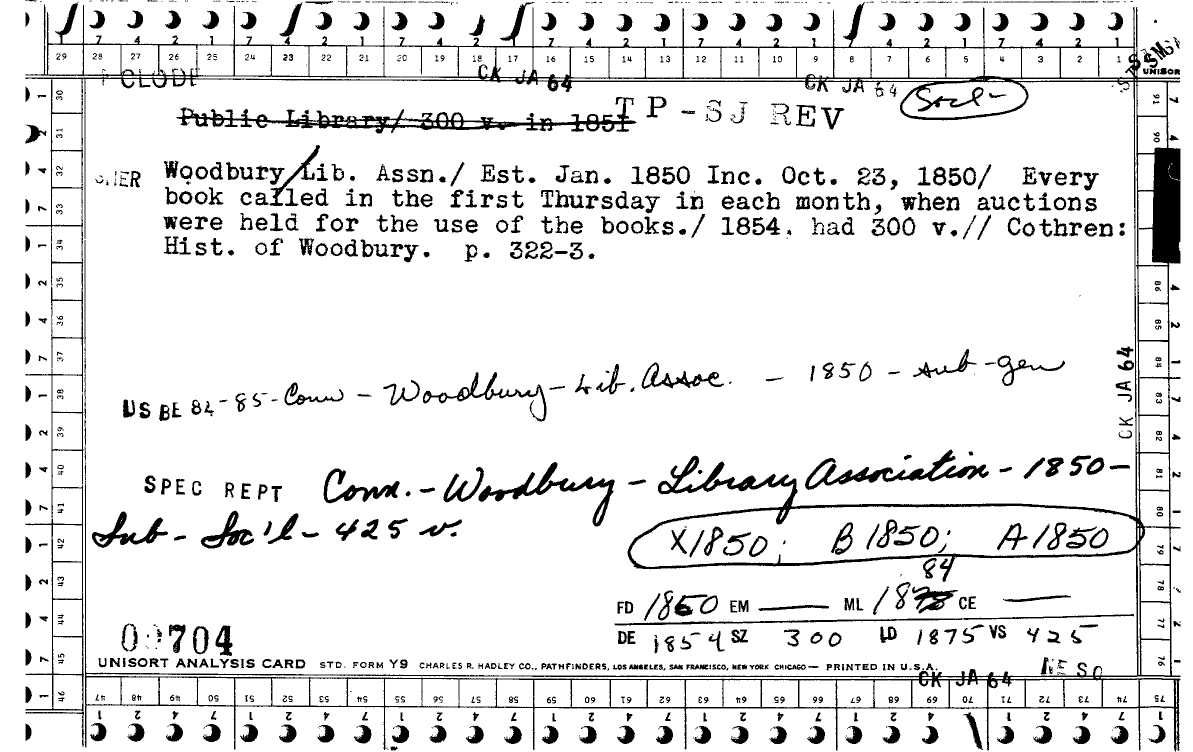 7 4 2 1 7 4 2 1 7 4 2 1 7 4 2 1 7 4 2 1 7 4 2 1 7 4 2 1
29 28 27 26 25 24 23 22 21 20 19 18 17 16 15 14 13 12 11 10 9 8 7 6 5 4 3 2 1
UNISORT
CK JA 64
CK JA 64
Soc'l-
Public Library/ 300 v. in 1851
TP-SJ REV
Woodbury/Lib. Assn./ Est. Jan. 1850 Inc. Oct. 23, 1850/ Every
book called in the first Thursday in each month, when auctions
were held for the use of the books./ 1854. had 300 v.// Cothren:
Hist. of Woodbury. p. 322-3.
US BE 84-85-Conn - Woodbury-Lib. Assoc. - 1850 - sub-gen
CK JA 64
SPEC REPT Conn.-Woodbury-Library Association-1850-
Sub-Soc'l-425 v.
X1850; B 1850; A 1850
84
FD 1850 EM — ML 1878 CE —
DE 1854 SZ 300 LD 1875 VS 425
704
UNISORT ANALYSIS CARD STD. FORM Y9 CHARLES R. HADLEY CO., PATHFINDERS, LOS ANGELES, SAN FRANCISCO, NEW YORK CHICAGO — PRINTED IN U.S.A.
CK JA 64
47 48 49 50 51 52 53 54 55 56 57 58 59 60 61 62 63 64 65 66 67 68 69 70 71 72 73 74 75